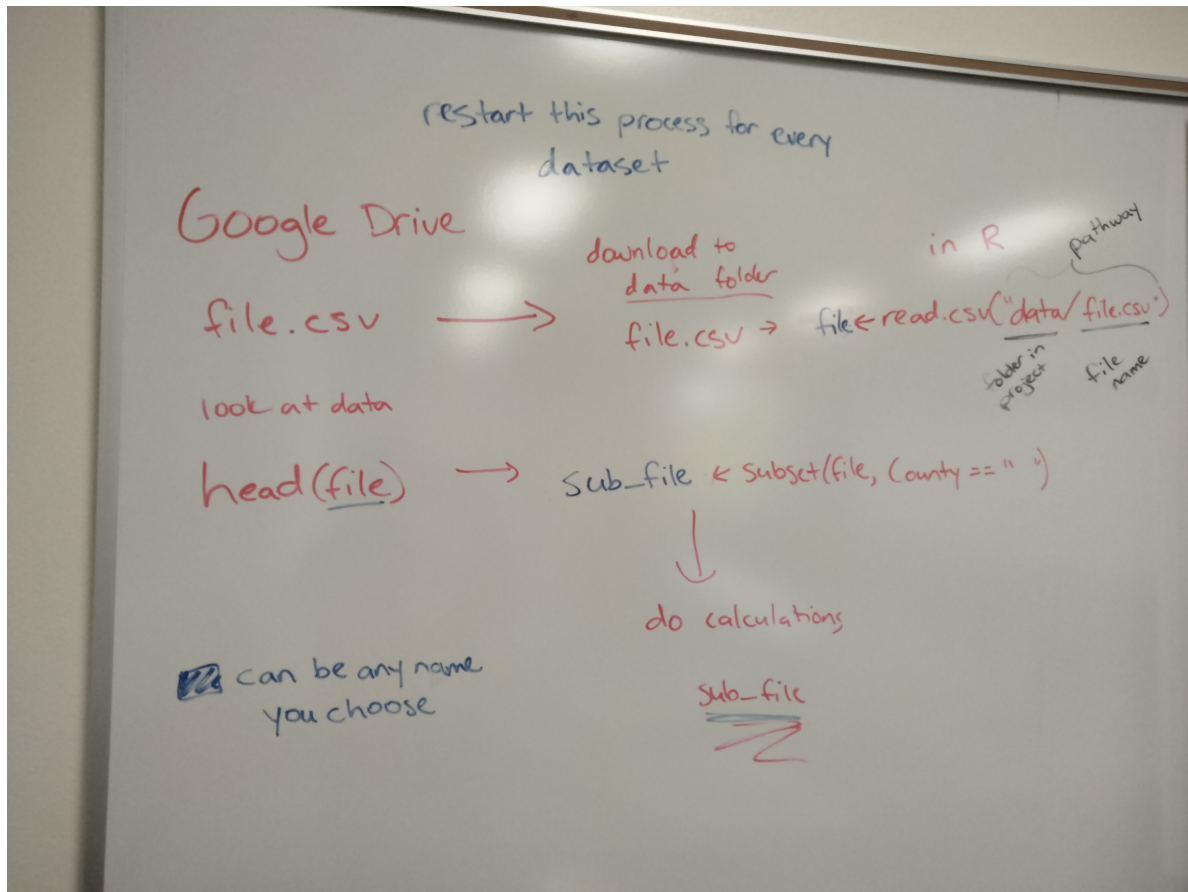 restart this process for every
dataset
Google Drive
download to
data folder
in R
pathway
file.csv → file.csv → file ← read.csv("data/file.csv")
folder in
project
file
name
look at data
head(file) → sub_file ← subset(file, County == " ")
do calculations
can be any name
you choose
sub_file